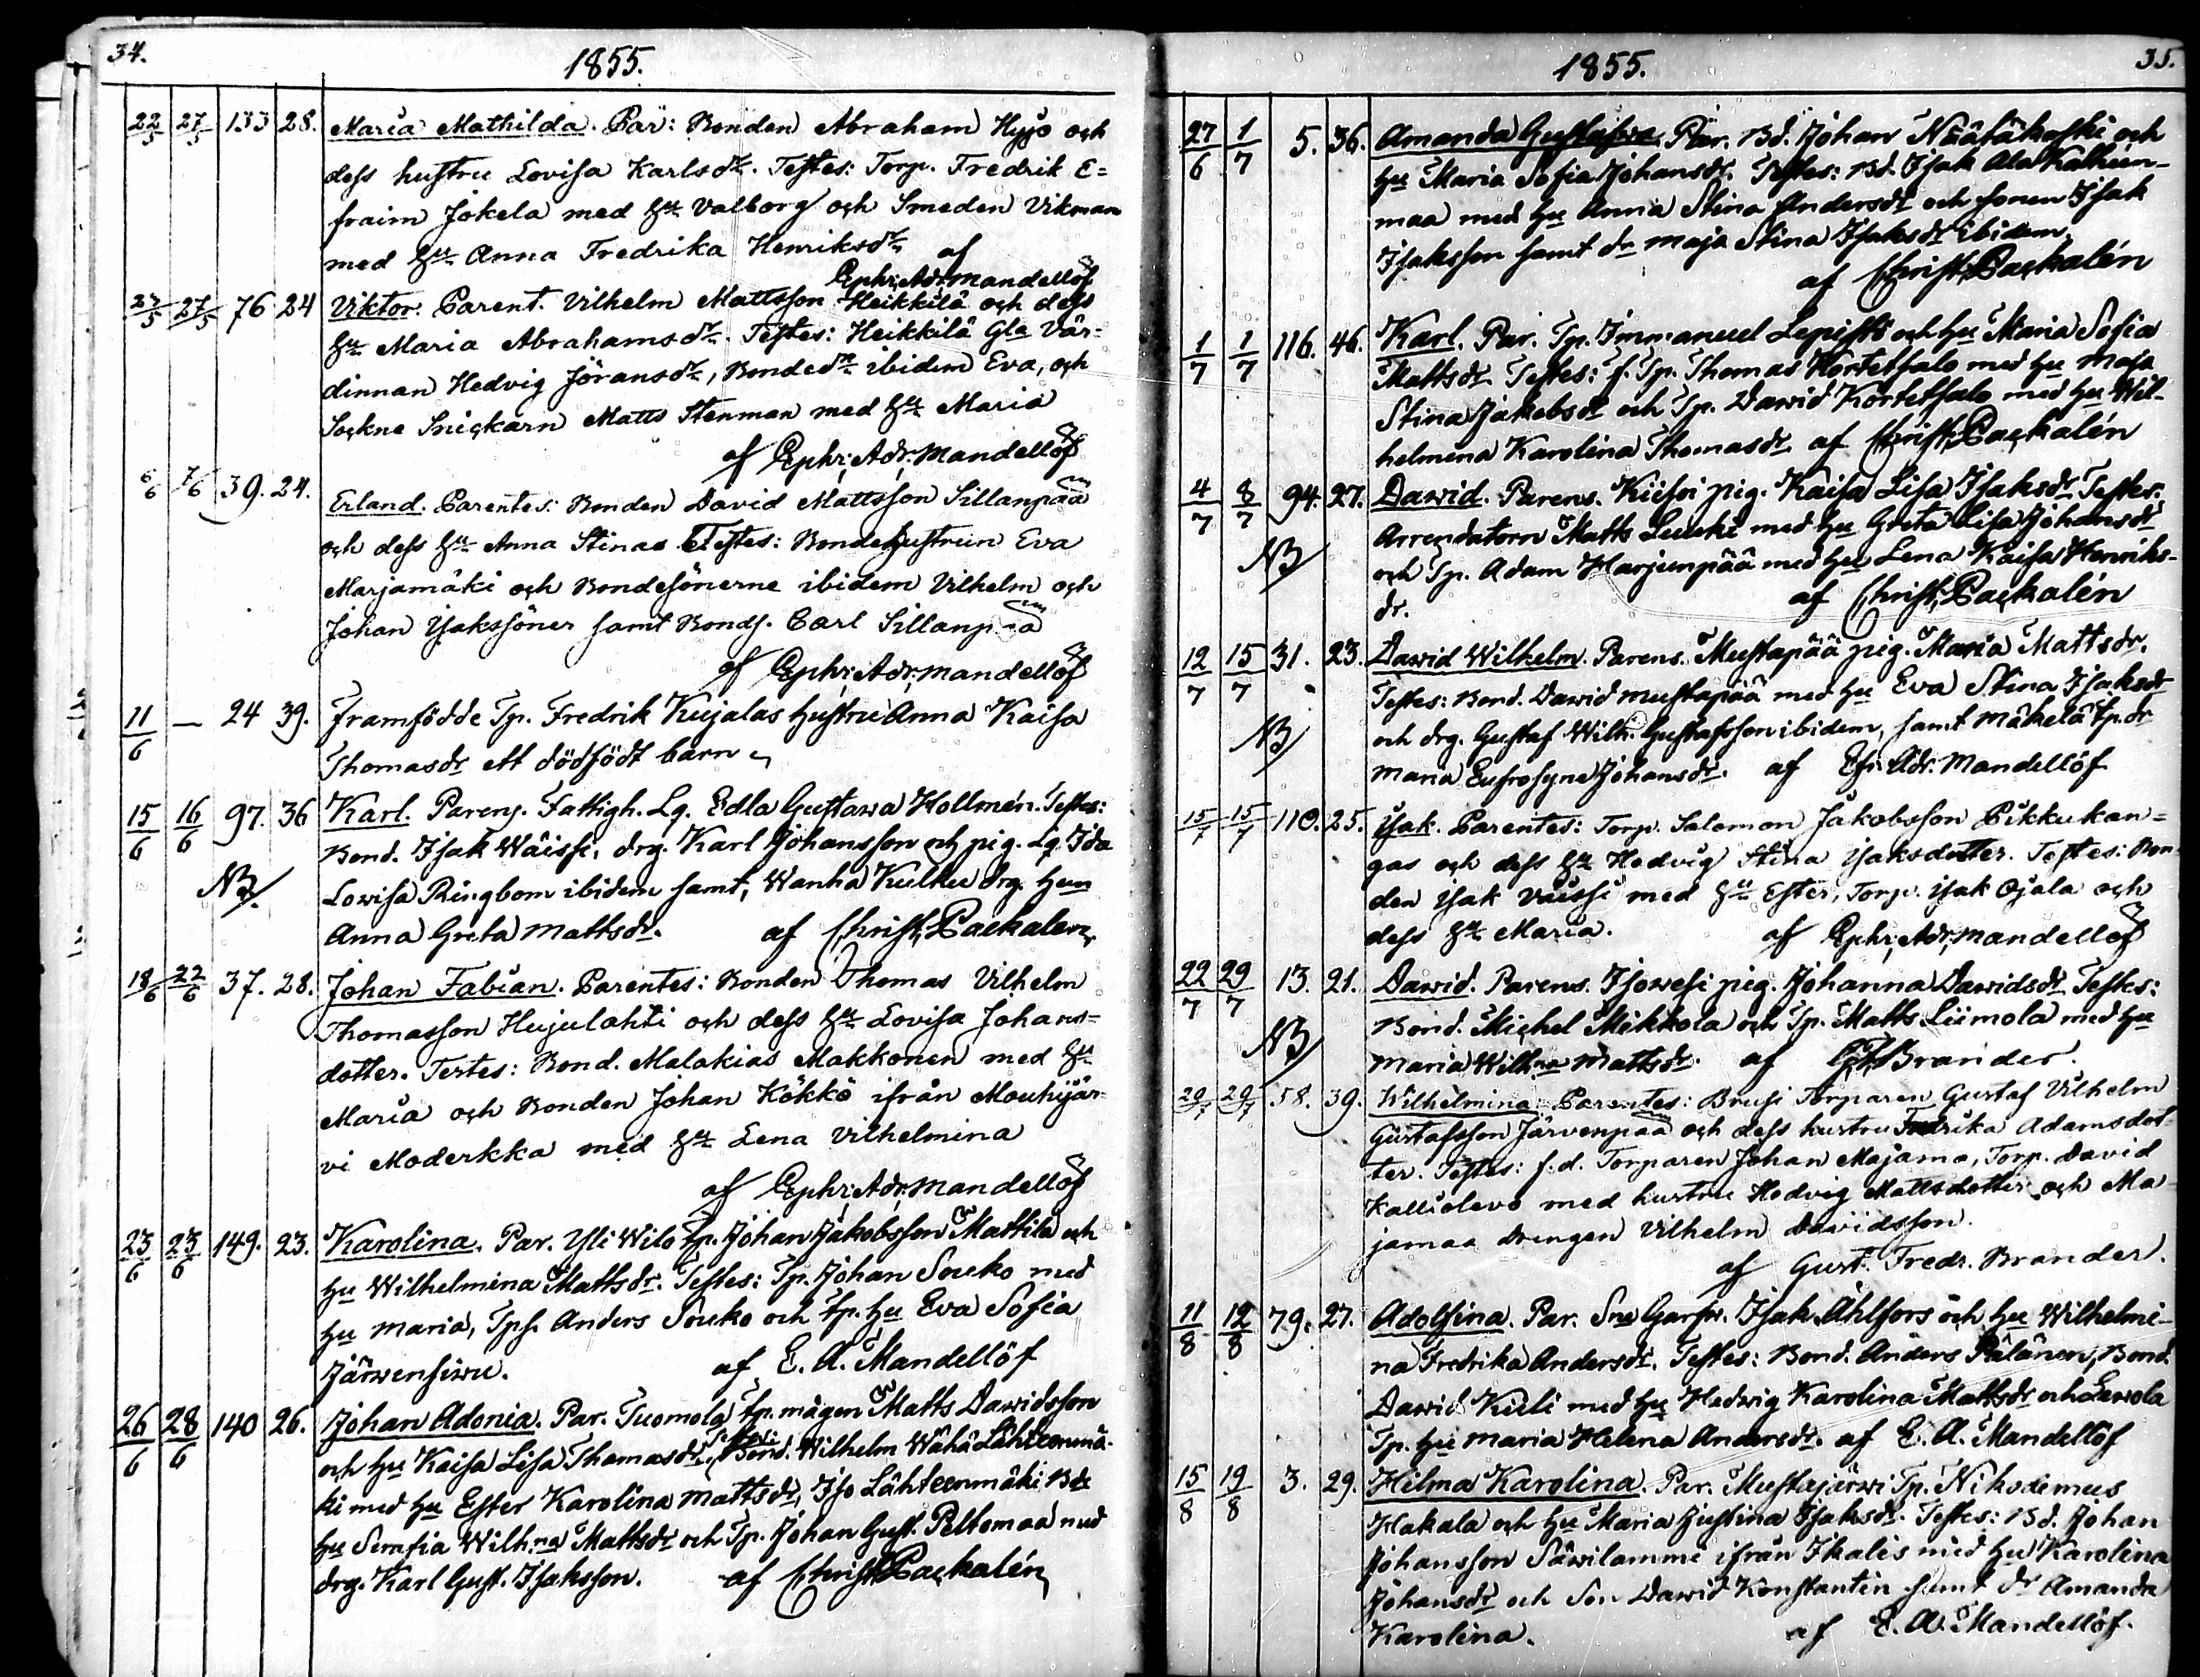 34.
1855.
22/5 27/5 133 28. Maria Mathilda. Par: Bonden Abraham Hyyjö och
dess hustru Lovisa Karlsdr. Testes: Torp. Fredrik E=
fraim Jokela med hu Valborg och Smeden Vikman
med hu Anna Fredrika Henriksdr
af
Ephr: Adr: Mandellöf
27/5 76 24 Viktor. Parent. Vilhelm Mattsson Heikkilä och dess
hu Maria Abrahamsdr. Testes: Heikkilä Gla Vär-
dinnan Hedvig Jöransdr, Bondedr ibidem Eva, och
Sockne Snickarn Matts Stenman med hu Maria
af Ephr: Adr: Mandellöf
6/6 7/6 39. 24. Erland. Parentes: Bonden David Mattsson Sillanpää
och dess hu Anna Stina Testes: Bondehustrun Eva
Marjamäki och Bondesönerne ibidem Vilhelm och
Johan Isakssöner samt Bonds. Carl Sillanpää
af Ephr: Adr: Mandellöf
11/6 — 24 39. Framfödde Tp. Fredrik Kujalas hustru Anna Kaisa
Thomasdr ett dödfödt barn
15/6 16/6 97. 36 Karl. Parens. Fattigh. Lg. Edla Gustawa Hollmén. Testes:
Bond. Isak Wäissi, drg. Karl Johansson och pig. Lg. Ida
NB. Lowisa Ringbom ibidem samt, Wanha Kulku drg. hun
Anna Greta Mattsdr. af Christ. Packalén
18/6 22/6 37. 28. Johan Fabian. Parentes: Bonden Thomas Vilhelm
Thomasson Hujulahti och dess hu Lovisa Johans=
dotter. Testes: Bond. Malakias Makkonen med hu
Maria och Bonden Johan Kökkö ifrån Mouhijär-
vi Moderkka med hu Lena Vilhelmina
af Ephr: Adr: Mandellöf
23/6 23/6 149. 23. Karolina. Par. Yli Wilo tp. Johan Jakobsson Mattila och
hu Wilhelmina Mattsdr. Testes: Tp. Johan Souko med
hu Maria, Tps. Anders Souko och tp. hu Eva Sofia
Järwensiwu. af E. A. Mandellöf
26/6 28/6 140 26. Johan Adonia. Par. Tuomola tp. mågen Matts Dawidsson
och hu Kaisa Lisa Thomasdr. Testes: Bond. Wilhelm Wähä Lähteenmä-
ki med hu Ester Karolina Mattsdr, Iso Lähteenmäki Bde
hu Serafia Wilh:na Mattsdr och Tp. Johan Gust. Peltomaa med
drg. Karl Gust. Isaksson. af Christ. Packalén
35.
1855.
27/6 1/7 5. 36. Amanda Gustafwa. Par. Bd. Johan Näätäkoski och
hu Maria Sofia Johansdr. Testes: Bd. Isak Ala Kalhun-
maa med hu Anna Stina Andersdr och sonen Isak
Isaksson samt dr Maja Stina Isaksdr ibidem.
af Christ. Packalén
1/7 1/7 116. 46. Karl. Par. Tp. Immanuel Lepistö och hu Maria Sofia
Mattsdr. Testes: f. Tp. Thomas Kortetsalo med hu Maja
Stina Jakobsdr och Tp. Dawid Kortetsalo med hu Wil-
helmina Karolina Thomasdr. af Christ. Packalén
4/7 8/7 94. 27. Dawid. Parens. Kiissi pig. Kaisa Lisa Isaksdr. Testes:
Arrendatorn Matts Luuki med hu Greta Lisa Johansdr
NB och Tp. Adam Harjunpää med hu Lena Kaisa Henriks-
dr. af Christ. Packalén
12/7 15/7 31. 23. Dawid Wilhelm. Parens. Mustapää pig. Maria Mattsdr.
Testes: Bond. Dawid Mustapää med hu Eva Stina Isaksdr
NB och drg. Gustaf Wilh. Gustafsson ibidem, samt Mäkelä tp. dr
Maria Eufrosyne Johansdr. af Efr. Adr. Mandellöf
15/7 15/7 110. 25. Isak. Parentes: Torp. Salomon Jakobsson Pikkukan=
gas och dess hu Hedvig Stina Isaksdotter. Testes: Bon-
den Isak Väissi med hu Ester, Torp. Isak Ojala och
dess hu Maria. af Ephr: Adr: Mandellöf
22/7 29/7 13. 21. Dawid. Parens. Isowesi pig. Johanna Dawidsdr. Testes:
Bond. Michel Mikkola och Tp. Matts Liimola med hu
NB Maria Wilh:na Mattsdr. af G. F. Brander.
29/7 29/7 58. 39. Wilhelmina. Parentes: Brusi Torparen Gustaf Vilhelm
Gustafsson Järvenpää och dess hustru Fredrika Adamsdot-
ter. Testes: f.d. Torparen Johan Majama, Torp. David
Kalliolevo med hustru Hedvig Mattsdotter och Ma-
jamaa Drengen Vilhelm Davidsson.
af Gust. Fredr. Brander.
11/8 12/8 79. 27. Adolfina. Par. Sne Garfw. Isak Ahlfors och hu Wilhelmi-
na Fredrika Andersdr. Testes: Bond. Anders Pälänen, Bond.
Dawid Kuli med hu Hedwig Karolina Mattsdr och Lawola
Tp. hu Maria Helena Andersdr. af E. A. Mandellöf
15/8 19/8 3. 29. Hilma Karolina. Par. Mustajärwi Tp. Nikodemus
Hakala och hu Maria Justina Isaksdr. Testes: Bd. Johan
Johansson Säwilammi ifrån Ikalis med hu Karolina
Johansdr och Son Dawid Konstantin samt dr Amanda
Karolina. af E. A. Mandellöf.